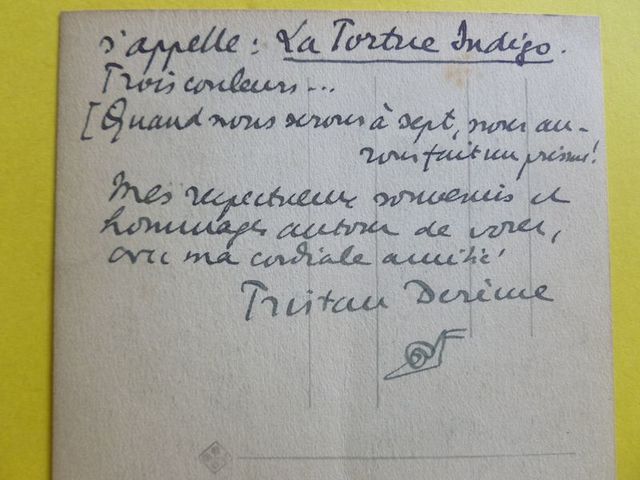 s'appelle : La Tortue Indigo.
Trois couleurs...
[Quand nous serons à sept, nous au-
rons fait un prisme!
Mes respectueux souvenirs et
hommages autour de vous,
avec ma cordiale amitié
Tristan Derème